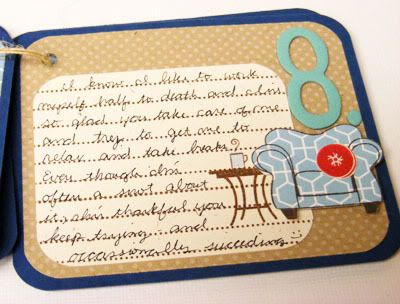 8.
I know I like to work
myself half to death and I'm
so glad you take care of me
and try to get me to
relax and take breaks.
Even though I'm
often a snot about
it, I'm thankful you
keep trying - and
occasionally succeeding :)